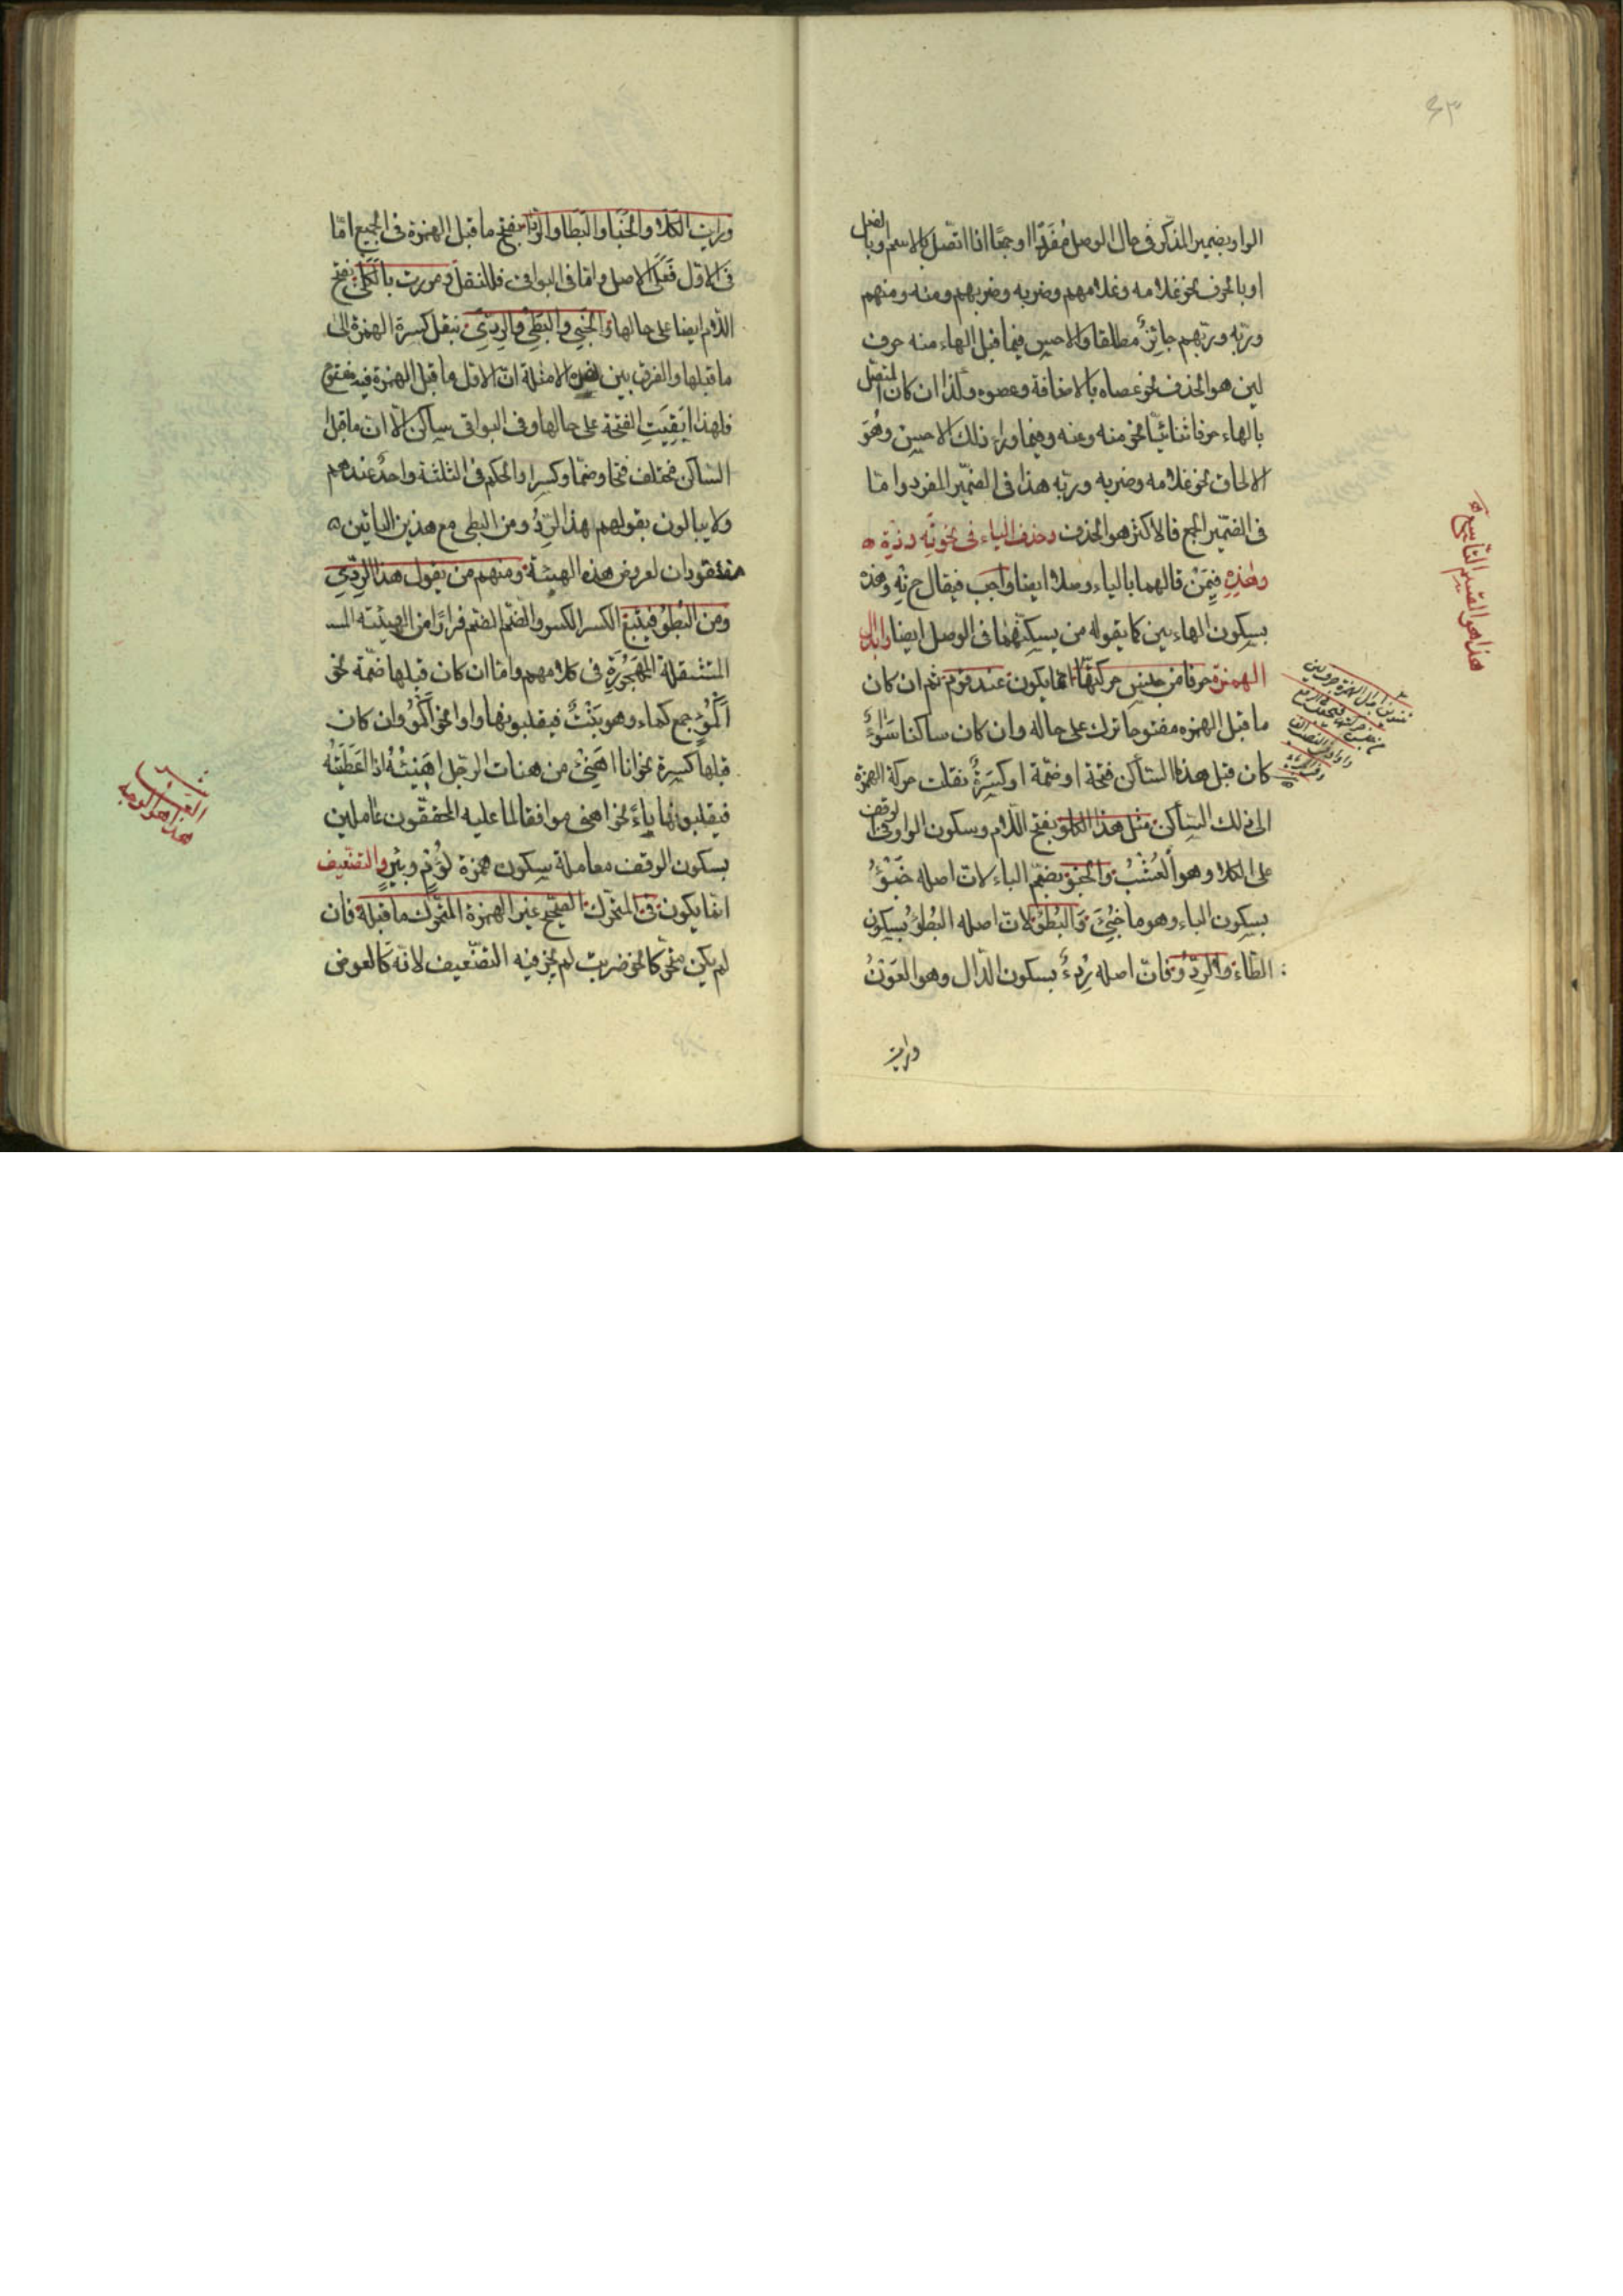 ٤٣
الواو بضمير المذكر فى حال الوصل مفردا او جمعا اذا اتصل بالاسم وبالفعل
او بالحرف نحو غلامه وغلامهم وضربه وضربهم ومنه ومنهم
وربه وربهم جائز مطلقا والاحسن فيما قبل الهاء منه حرف
لين هو الحذف نحو عصاه بالاضافة وعصوه وكذا ان كان المتصل
بالهاء حرفا ثنائيّا نحو منه وعنه وفيما وراء ذلك الاحسن وهُوَ
الالحاق نحو غلامه وضربه وربّه هذا فى الضمير المفرد وامّا
فى الضمير الجمع فالاكثر هو الحذف وحذف الياء فى نحو تِه وذِه
وهٰذِهِ فيمَنْ قالهما بالياء وصلا ايضا واجب فيقال ح تِه وهذه
بسكون الهاءين كما يقوله من يسكّنهما فى الوصل ايضا وابدال
الهمزة حرفا من جنس حركتها انما يكون عند قوم ثم ان كان
ما قبل الهمزه مفتوحا ترك على حاله وان كان ساكنا سَوَاءٌ
كان قبل هذا الساكن فتحة او ضمّة او كسَرةٌ نقلت حركة الهمزة
الى ذلك الساكن مثل هذا الكلو بفتح اللام وسكون الواو فى الوقف
على الكلاء وهو العُشْبُ والخبو بضمّ الباء لان اصله خَبْؤٌ
بسكون الباء وهو ما خُبِئَ وَالبُطُؤ لان اصله البُطْؤُ بسكون
الطاء والرِدُؤ فان اصله رِدْءٌ بسكون الدال وهو العَوْنُ
ورايت
هذا هو القسم التاسع
ورايت الكلا والخَبا والبَطا والرِدا بفتح ما قبل الهمزة فى الجميع امّا
فى الاول فعَلَى الاصل واما فى البواقى فللنقل ومررت بالكَلَى بفتح
اللام ايضا على حالها والخَبِي والبُطِي والرِدِي بنقل كسرة الهمزة الى
ما قبلها والفرق بين هذه الامثلة انّ الاول ما قبل الهمزة فيه مفتوح
فلهذا بَقِيَتِ الفتحة على حالها وفى البواقى ساكن الّا ان ما قبل
الساكن مختلف فتحا وضمّا وكسرا والحكم فى الثلثة واحدٌ عندهم
ولا يبالون بقولهم هذا الرِدُ ومن البطى مع هذين البائين
مفقودان لعروض هذه الهيئة ومنهم من يقول هذا الرِدِي
ومن البُطُؤ فيتبع الكسر الكسر والضمّ الضم فرارًا من الهيئته المس
المستثقلة المَهجُورَةِ فى كلامهم وامّا ان كان قبلها ضمّة نحو
اَكْمُؤٍ جمع كماء وهو نَبْتٌ فيقلبونها واوا نحو اَكْمُوْ وان كان
قبلها كسرة نحو انا اَهْنِئُ من هنات الرجل اهْنِئُهُ اذا اَعْطَيْتَهُ
فيقلبونها ياءً نحو اهنى موافقا لما عليه المحققون عاملين
بسكون الوقف معاملة سكون همزة لُؤْمٍ وبئرٍ والتضعيف
انما يكون فى المتحرك الصحيح غير الهمزة المتحرك ما قبله فان
لم يكن متحركا نحو ضربت لم يجز فيه التضعيف لانه كالعوض
هذا هو الوجه